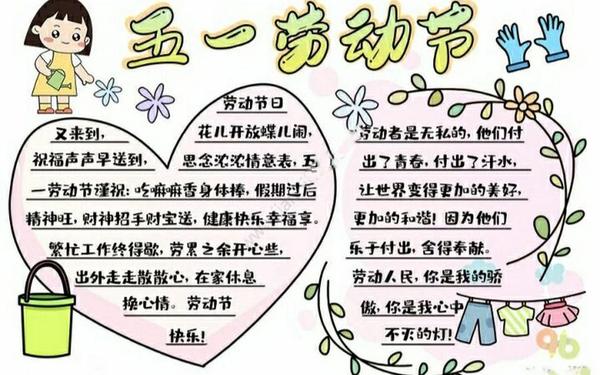 五一劳动节
劳动节日
又来到，花儿开放蝶儿闹，
祝福声声早送到，思念浓浓情意表，五
一劳动节谨祝：吃嘛嘛香身体棒，假期过后
精神旺，财神招手财宝送，健康快乐幸福享。
繁忙工作终得歇，劳累之余开心些，
出外走走散散心，在家休息
换心情。劳动节
快乐！
劳动者是无私的，他们付
出了青春，付出了汗水，
让世界变得更加的美好，
更加的和谐！因为他们
乐于付出，舍得奉献。
劳动人民，你是我的骄
傲，你是我心中
不灭的灯！